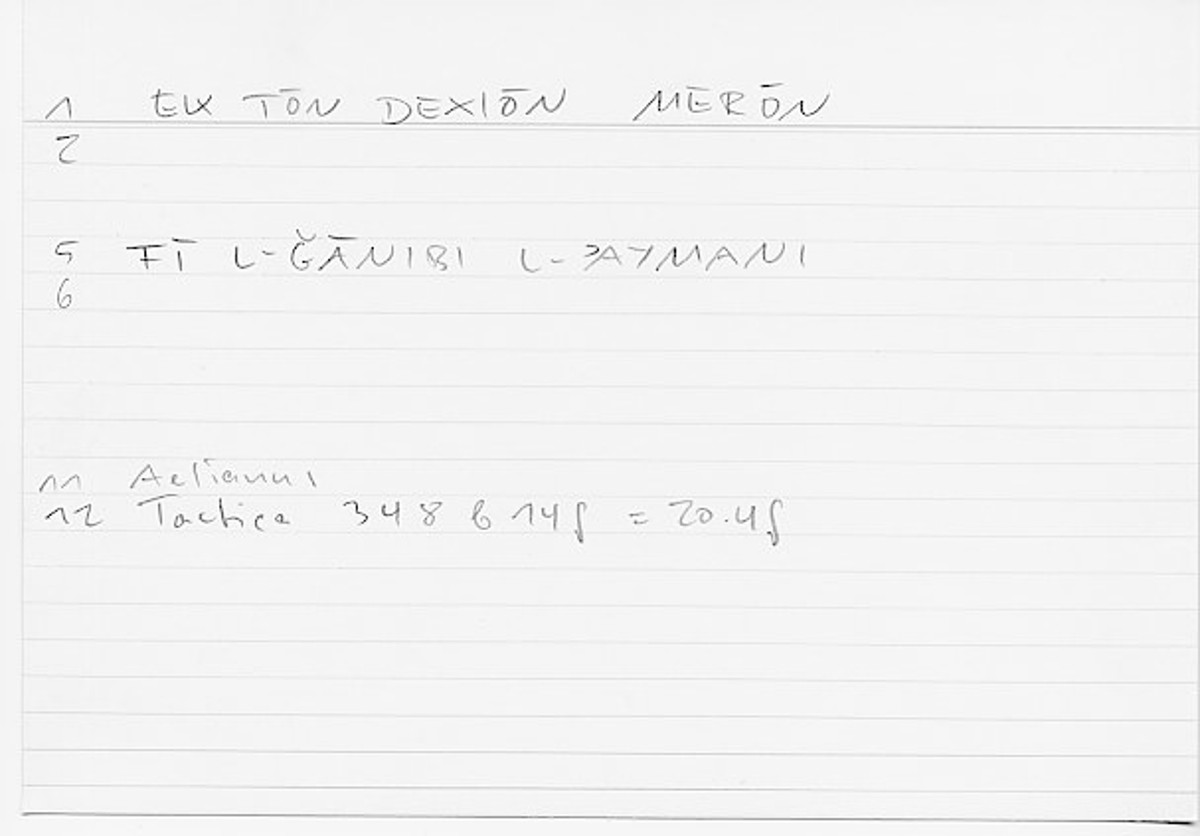 1 EK TŌN DEXIŌN MERŌN
2
5 FĪ L-ǦĀNIBI L-ʾAYMANI
6
11 Aelianus
12 Tactica 348 b 14f = 20.4f